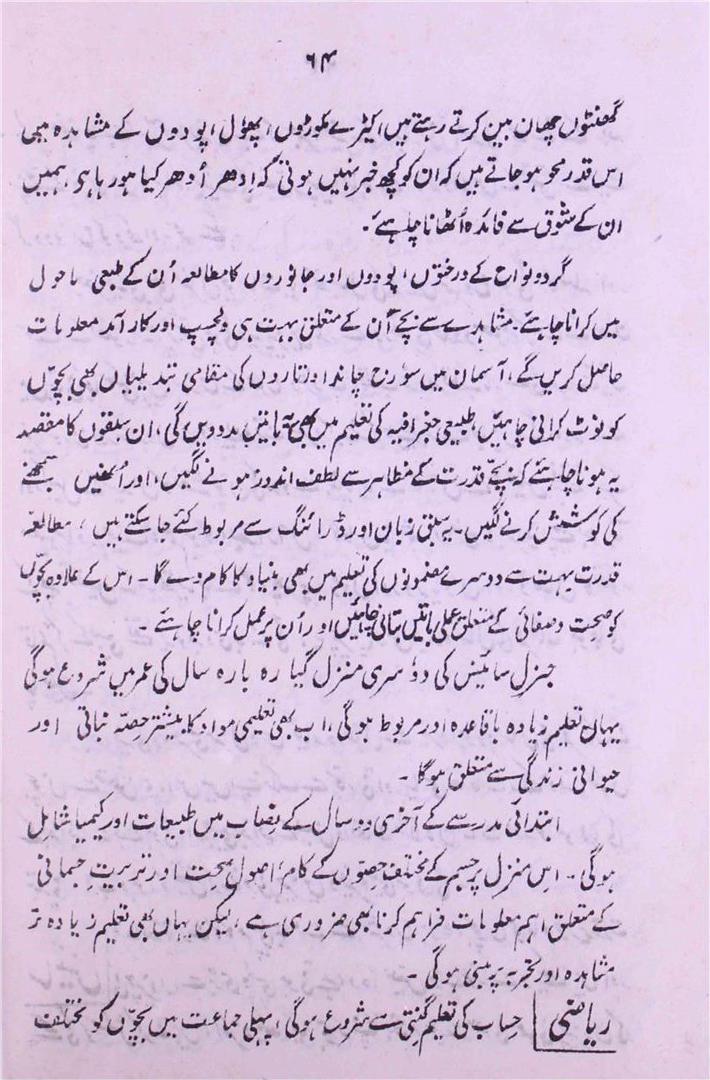 ۶۴
گھنٹوں چھان بین کرتے رہتے ہیں، کیڑے مکوڑوں، پھول، پودوں کے مشاہدہ میں
اس قدر محو ہو جاتے ہیں کہ ان کو کچھ خبر نہیں ہوتی کہ اِدھر اُدھر کیا ہو رہا ہے، ہمیں
ان کے شوق سے فائدہ اُٹھانا چاہئے۔
گرد و نواح کے درختوں، پودوں اور جانوروں کا مطالعہ اُن کے طبعی ماحول
میں کرانا چاہئے۔ مشاہدے سے بچے اُن کے متعلق بہت ہی دلچسپ اور کار آمد معلومات
حاصل کریں گے، آسمان میں سورج چاند اور تاروں کی مقامی تبدیلیاں بھی بچوّں
کو نوٹ کرانی چاہئیں، طبیعی جغرافیہ کی تعلیم میں بھی یہ باتیں مدد دیں گی، ان سبقوں کا مقصد
یہ ہونا چاہئے کہ بچے قدرت کے مظاہر سے لطف اندوز ہونے لگیں، اور اُنھیں سمجھنے
کی کوشش کرنے لگیں۔ یہ سبق زبان اور ڈرائنگ سے مربوط کئے جا سکتے ہیں، مطالعۂ
قدرت بہت سے دوسرے مضمونوں کی تعلیم میں بھی بنیاد کا کام دے گا۔ اس کے علاوہ بچوّں
کو صحت و صفائی کے متعلق عملی باتیں بتانی چاہئیں اور اُن پر عمل کرانا چاہئے۔
جنرل سائینس کی دوسری منزل گیارہ بارہ سال کی عمر میں شروع ہوگی
یہاں تعلیم زیادہ باقاعدہ اور مربوط ہوگی، اب بھی تعلیمی مواد کا بیشتر حصّہ نباتی اور
حیوانی زندگی سے متعلق ہوگا۔
ابتدائی مدرسے کے آخری دو سال کے نصاب میں طبیعات اور کیمیا شامل
ہوگی۔ اس منزل پر جسم کے مختلف حصّوں کے کام، اصول صحت اور تربیتِ جسمانی
کے متعلق اہم معلومات فراہم کرنا بھی ضروری ہے، لیکن یہاں بھی تعلیم زیادہ تر
مشاہدہ اور تجربہ پر مبنی ہوگی۔
ریاضی حساب کی تعلیم گنتی سے شروع ہوگی، پہلی جماعت میں بچوّں کو مختلف